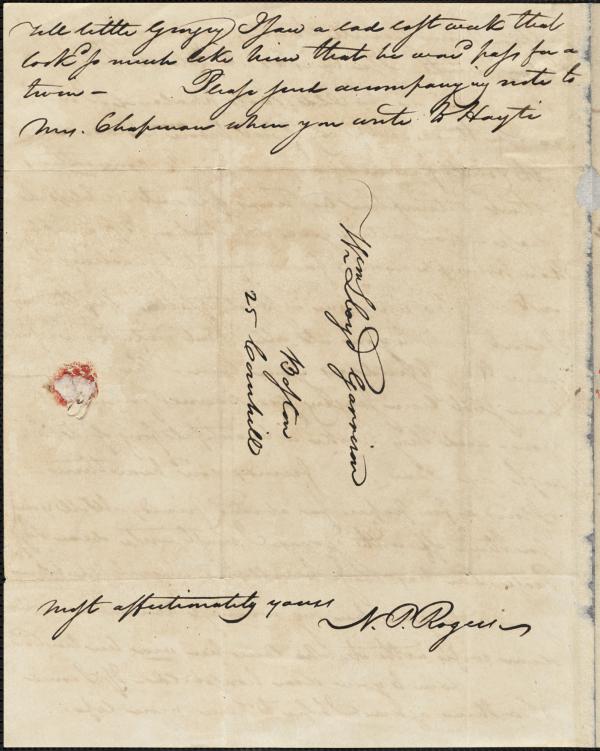 tell little Georgy I saw a lad last week that
look'd so much like him that he wou'd pass for a
twin — Please send accompanying note to
Mrs. Chapman when you write to Hayti
Wm Lloyd Garrison
Boston
25 Cornhill
most affectionately yours
N. P. Rogers